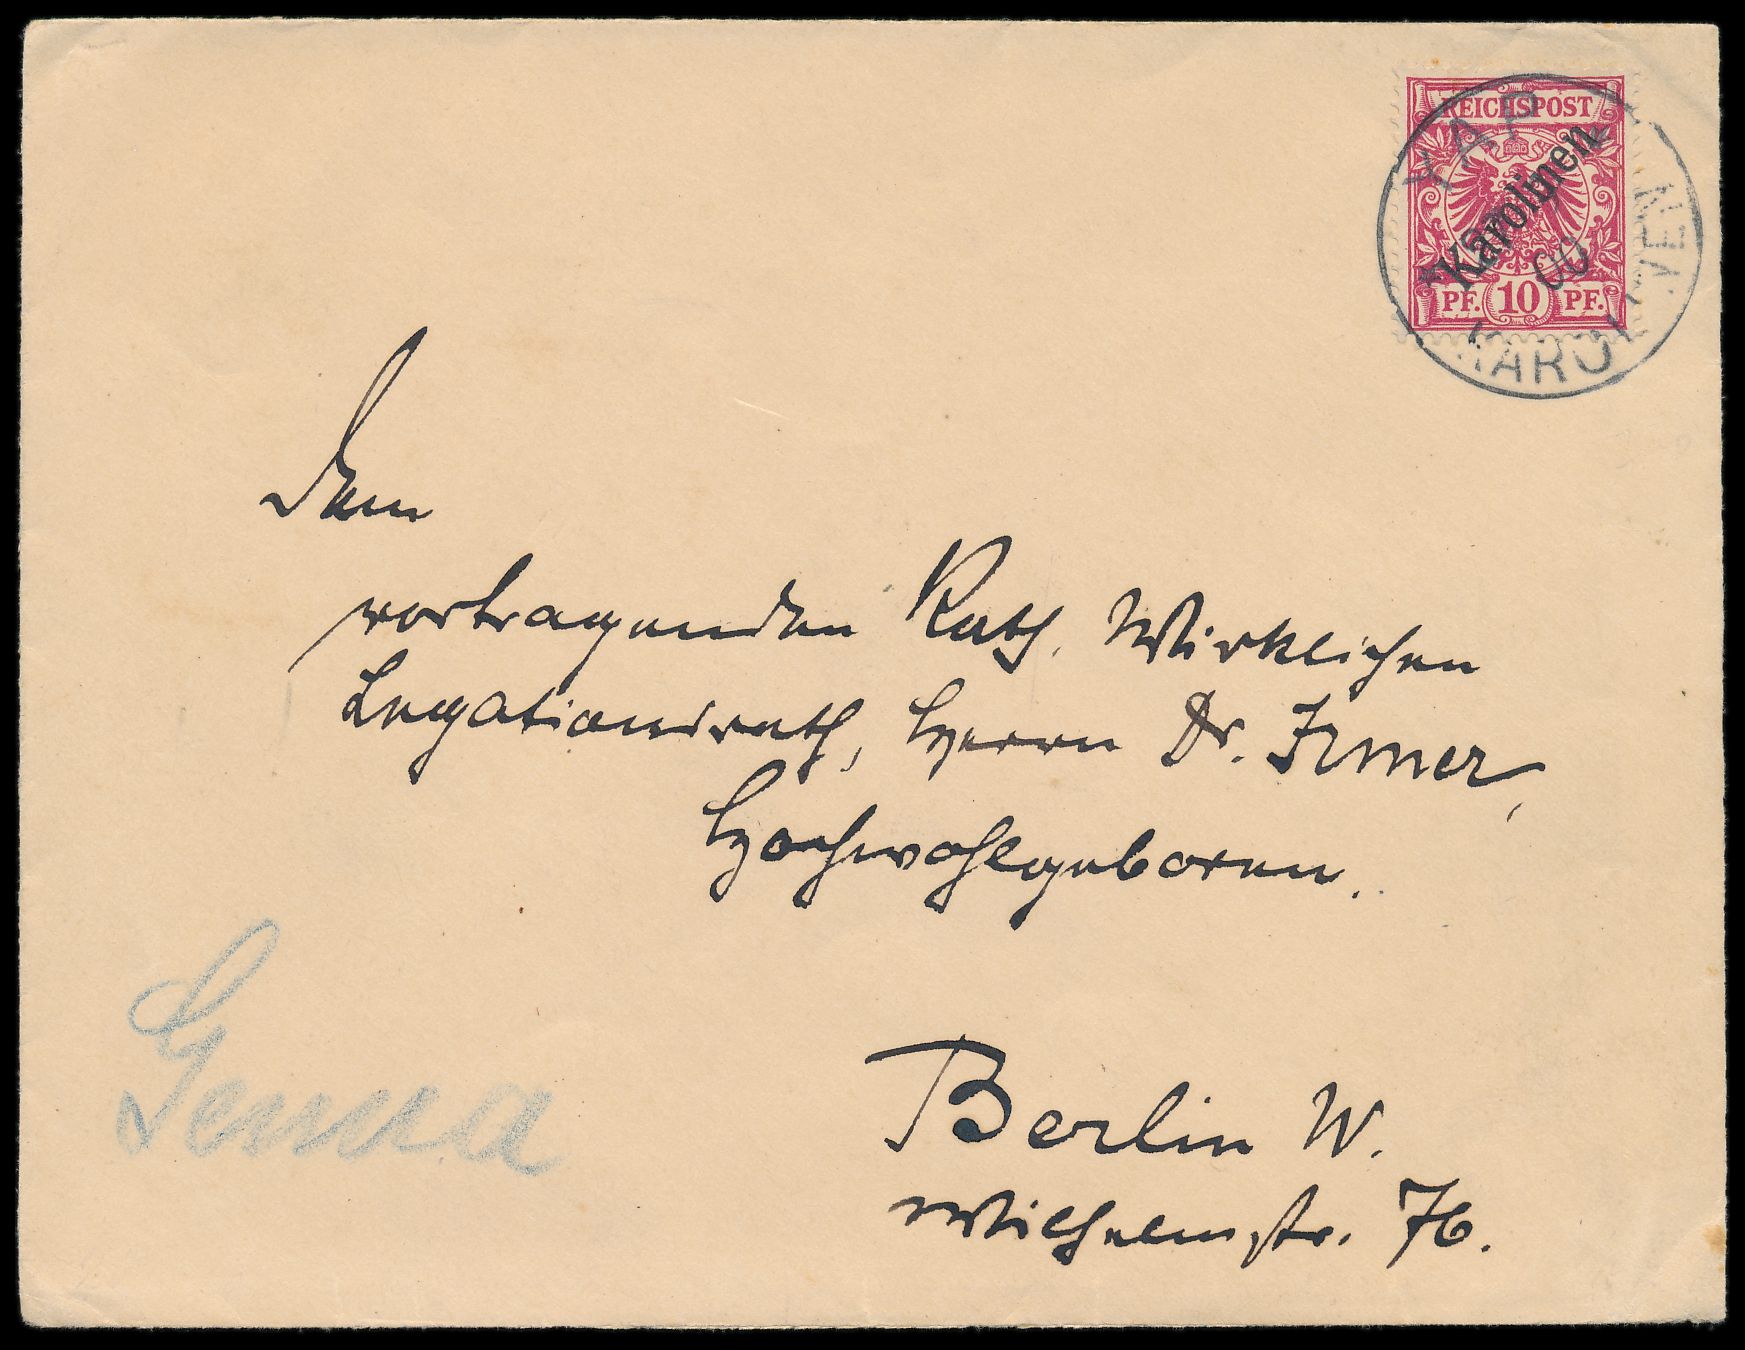 REICHSPOST
Karolinen
PF. 10 PF.
YAP
00
KAROLINEN
Dem
vortragenden Rath, Wirklichen
Legationsrath, Herrn Dr. Irmer,
Hochwohlgeboren.
Berlin W.
Wilhelmstr. 76.